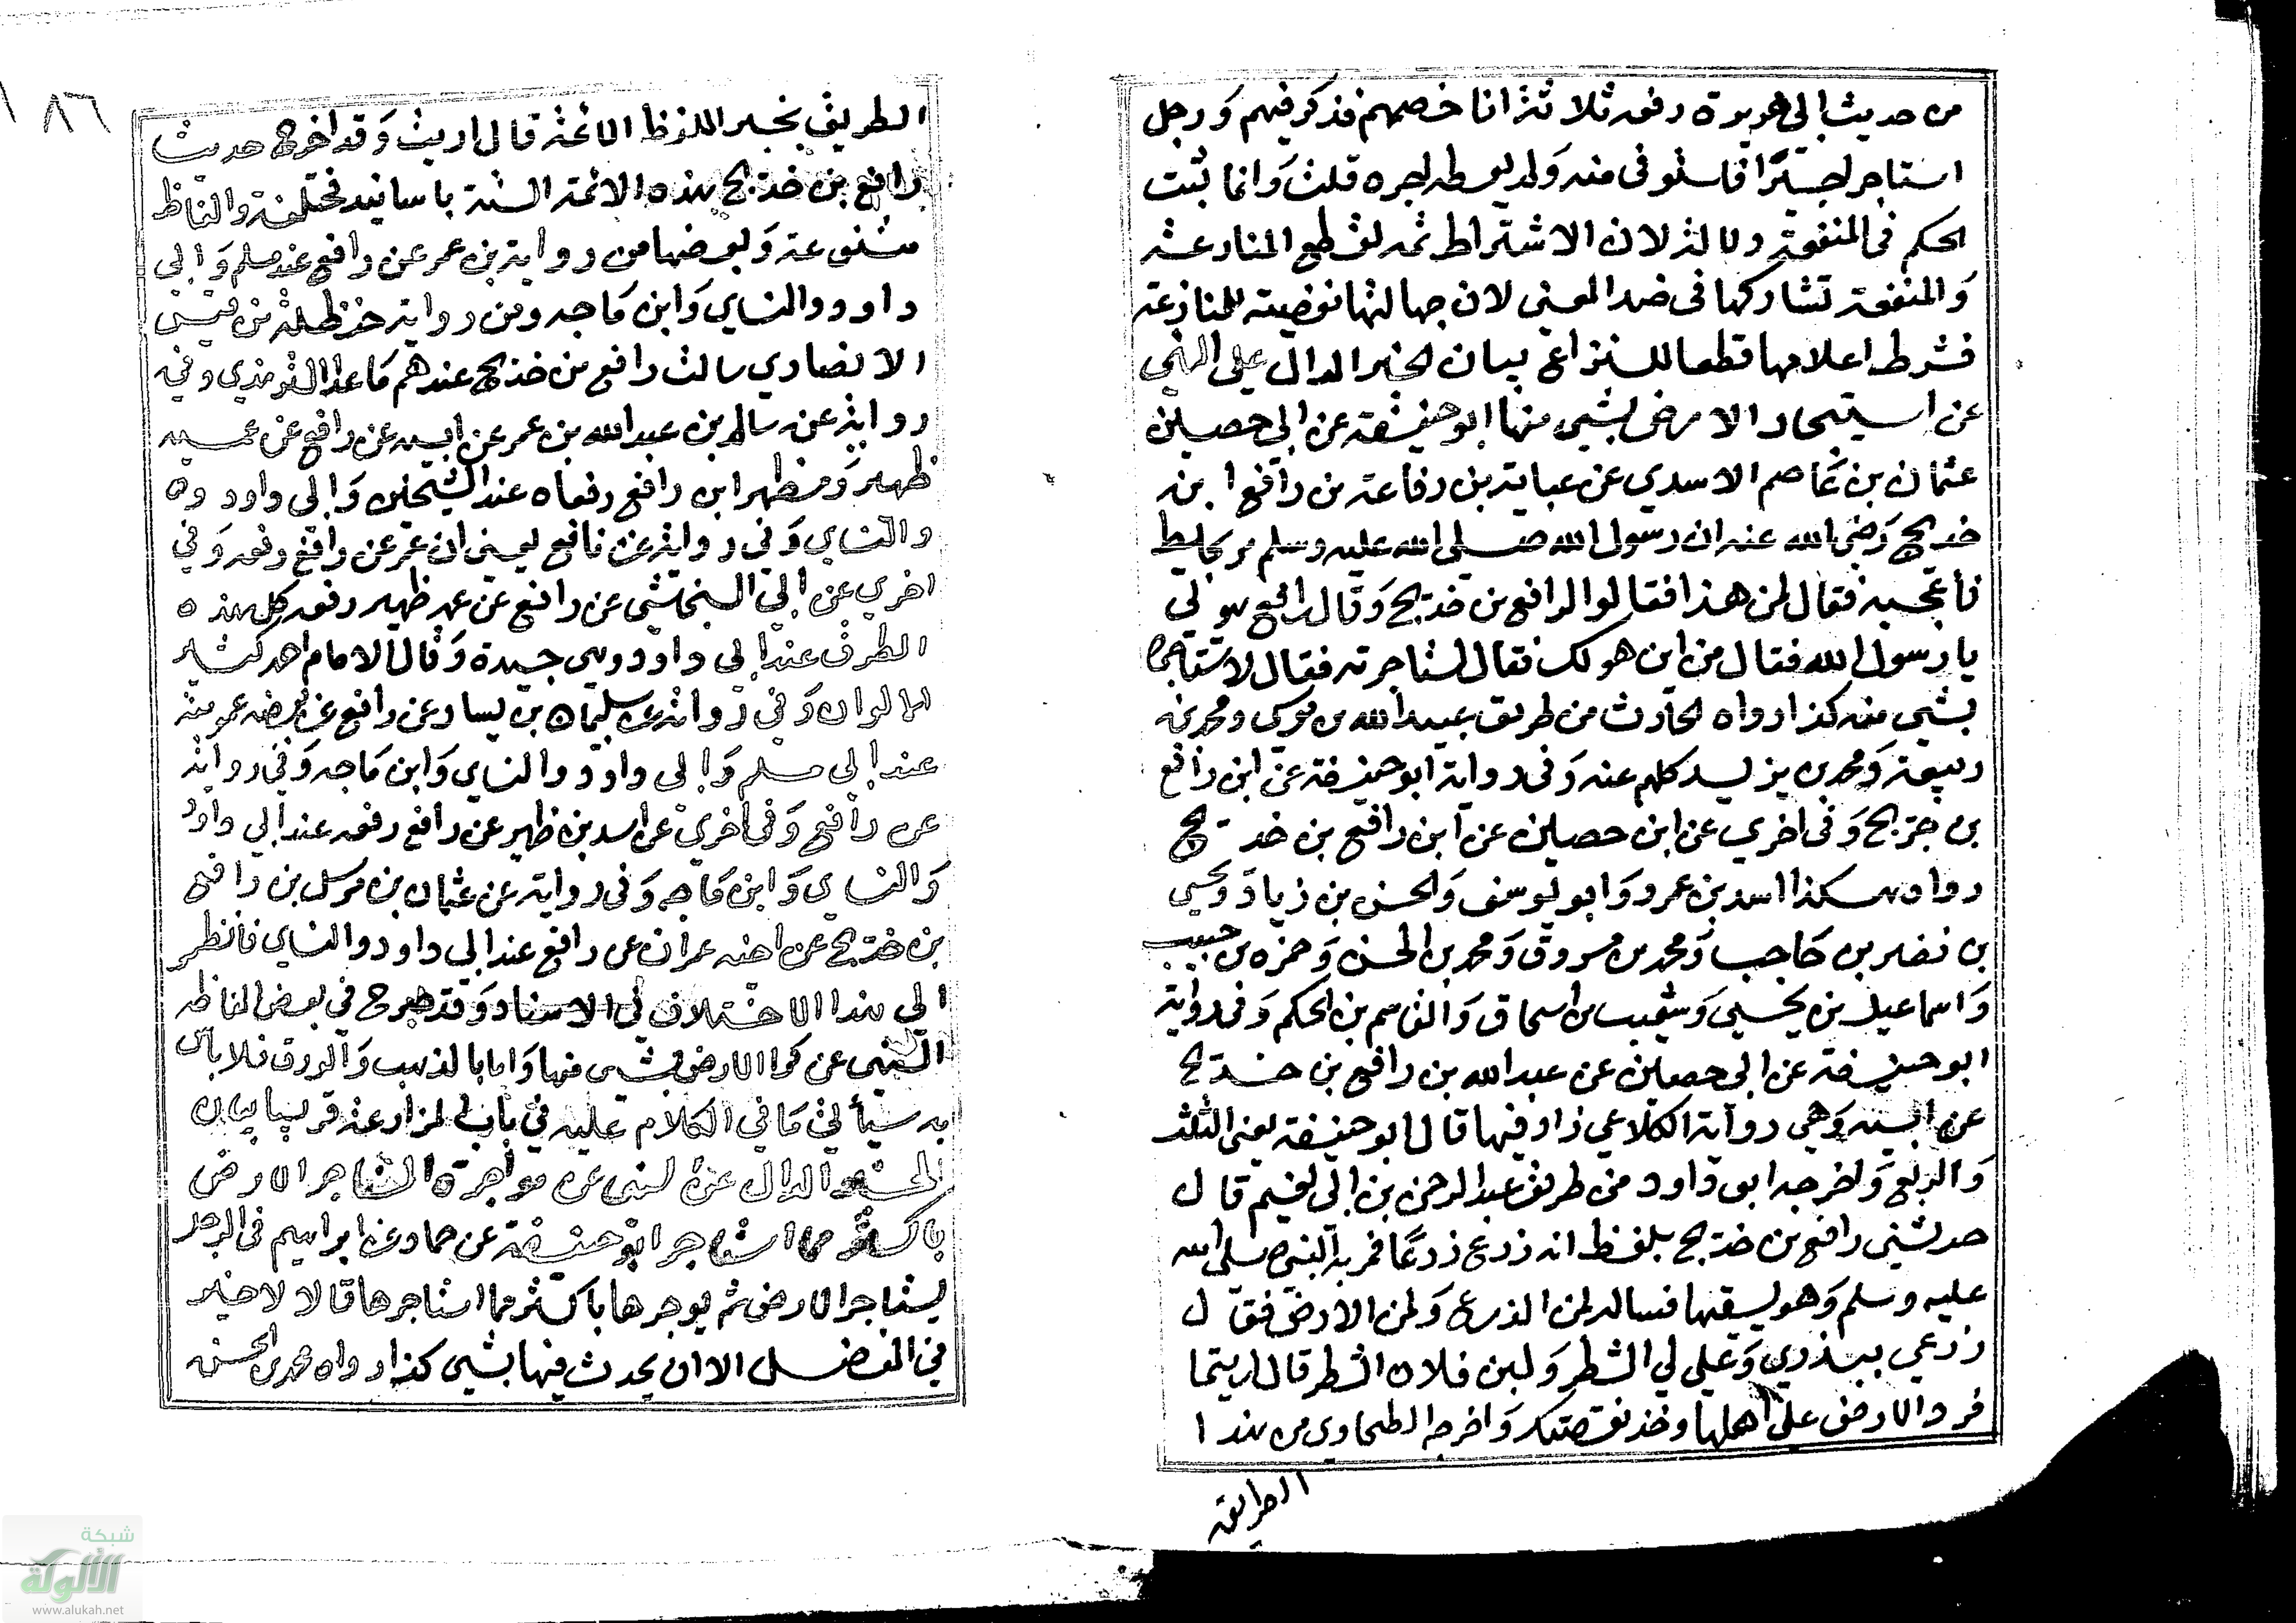 من حديث ابي هريرة رفعه ثلاثة انا خصمهم فذكر فيهم وَرجل
استاجر اجيرًا فاستوفى منه وَلم يعطه اجره قلت وَانما ثبت
الحكم في المنفعة دلالة لان الاشتراط ثمه لقطع المنازعة
وَالمنفعة تشاركها في هذا المعنى لان جهالتها تفضية للمنازعة
فشرط اعلامها قطعا للنزاع بيان الخبر الدال على النهي
عن استيجار الارض بشي منها ابو حنيفة عن ابي حصين
عثمان بن عَاصم الاسدي عن عباية بن رفاعة بن رافع ابن
خديج رَضي الله عنه ان رسول الله صلى الله عليه وسلم مر بحايط
فأعجبه فقال لمن هذا فقالوا لرافع بن خديج وَقال رافع هو لي
يا رسول الله فقال من اين هو لك فقال استاجرته فقال لا تستاجره
بشي منه كذا رواه الحارث من طريق عبيد الله بن موسى ومحمد بن
ربيعة وَمحمد بن يزيد كلهم عنه وَفي رواية ابو حنيفة عن ابن رافع
بن خديج وَفي اخري عن ابن حصين عن ابن رافع بن خديج
رواه هكذا اسد بن عمرو وَابو يوسف وَالحسن بن زياد وَيحيى
بن نصر بن حَاجب وَمحمد بن مسروق وَمحمد بن الحسن وَحمزه بن حبيب
وَاسماعيل بن يحيى وَشعيب بن اسحاق وَالقاسم بن الحكم وَفي رواية
ابو حنيفة عن ابي حصين عن عبد الله بن رافع بن خديج
عن ابيه وَهي رواية الكلاعي زاد فيها قال ابو حنيفة يعني الثلث
وَالربع وَاخرجه ابو داود من طريق عبد الرحمن بن ابي نعيم قال
حدثني رافع بن خديج بلفظ انه زرع زرعًا فمر به النبي صلى الله
عليه وسلم وَهو يسقيها فساله لمن الزرع وَلمن الارض فقال
زرعي ببذري وَعملي لي الشطر وَلبني فلان الشطر قال اربيتما
فرد الارض على اهلها وخذ نفقتك وَاخرجه الطحاوي من هذا
الطريق
٨٦
الطريق بخير اللفظ قال اربيت وَقد اخرج حديث
رافع بن خديج هذه الائمة الستة باسانيد مختلفة والفاظ
متنوعة وَبعضها من رواية بن عمر عن رافع عند مسلم وَابي
داود والنساي وَابن مَاجه ومن رواية حنظلة بن قيس
الانصاري سالت رافع بن خديج عندهم مَا عدا الترمذي وفي
رواية عن سالم بن عبد الله بن عمر عن ابيه عن رافع عن عميه
ظهير وَمظهر ابن رافع رفعاه عند الشيخين وَابي داود
والنساي وَفي رواية عن نافع يعني ان عمر عن رافع رفعه وَفي
اخري عن ابي النجاشي عن رافع عن عمه ظهير رفعه كل هذه
الطرق عند ابي داود وهي جيدة وَقال الامام احمد كثير
الالوان وَفي رواية عن سليمان بن يسار عن رافع عن بعض عمومته
عند ابي مسلم وَابي داود والنساي وَابن مَاجه وَفي رواية
عن رافع وَفي اخري عن اسد بن ظهير عن رافع رفعه عند ابي داود
وَالنساي وَابن مَاجه وَفي رواية عن عثمان بن مرسل بن رافع
بن خديج عن اخيه عمران عن رافع عند ابي داود والنساي فانظر
الي هذا الاختلاف في الاسناد وَقد صرح في بعض الفاظه
النهي عن كرا الارض بشي منها وَاما بالذهب وَالورق فلا باس
به سيأتي مَا في الكلام عليه في باب المزارعة قريبا بيان
الخبر الدال عن لنهى عن مواجرة المستاجر الارض
باكثر مما استاجر ابو حنيفة عن حماد عن ابراهيم في الرجل
يستاجر الارض ثم يوجرها باكثر مما استاجرها قال لا خير
في الفضل الا ان يحدث فيها بشي كذا رواه محمد بن الحسن
شبكة
الألوكة
www.alukah.net